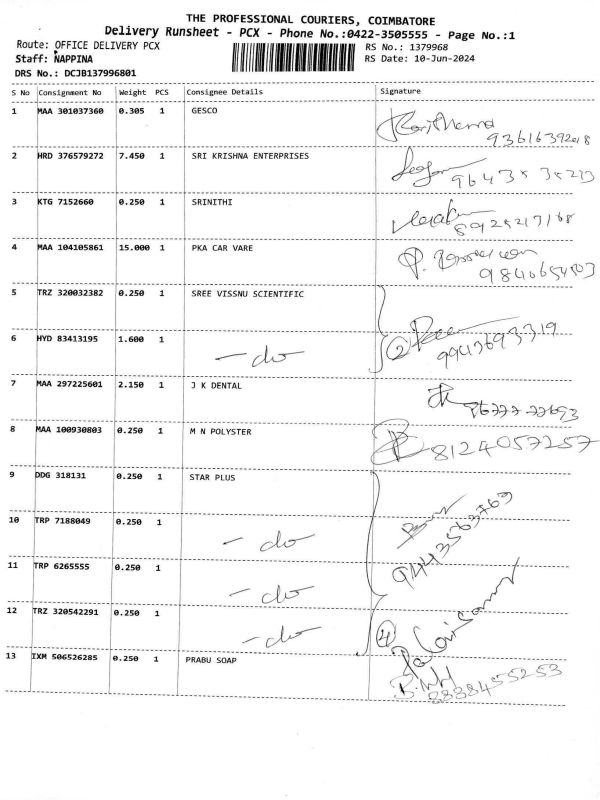 THE PROFESSIONAL COURIERS, COIMBATORE
Delivery Runsheet - PCX - Phone No.:0422-3505555 - Page No.:1
Route: OFFICE DELIVERY PCX RS No.: 1379968
Staff: NAPPINA RS Date: 10-Jun-2024
DRS No.: DCJB137996801
S No Consignment No Weight PCS Consignee Details Signature
1 MAA 301037360 0.305 1 GESCO
2 HRD 376579272 7.450 1 SRI KRISHNA ENTERPRISES
3 KTG 7152660 0.250 1 SRINITHI
8925217168
4 MAA 104105861 15.000 1 PKA CAR VARE
5 TRZ 320032382 0.250 1 SREE VISSNU SCIENTIFIC
6 HYD 83413195 1.600 1 - do 2 9943693319
7 MAA 297225601 2.150 1 J K DENTAL
8677777693
8 MAA 100930803 0.250 1 M N POLYSTER
8124057257
9 DDG 318131 0.250 1 STAR PLUS
10 TRP 7188049 0.250 1 - do
9443563763
11 TRP 6265555 0.250 1 - do
12 TRZ 320542291 0.250 1 - do 4
13 IXM 506526285 0.250 1 PRABU SOAP
8838455253